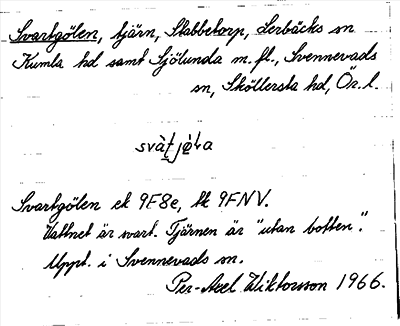 Svartgölen, tjärn, Stabbetorp, Lerbäcks sn
Kumla hd samt Sjölunda m.fl., Svennevads
sn, Sköllersta hd, Ör. l.
Svartgölen ek 9F8e, tk 9FNV.
Vattnet är svart. Tjärnen är "utan botten".
Uppt. i Svennevads sn.
Per-Axel Wiktorsson 1966.